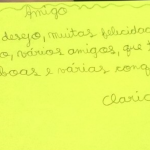 Amigo
desejo, muitas felicidad
o, vários amigos, que t
boas e várias conq
Claric